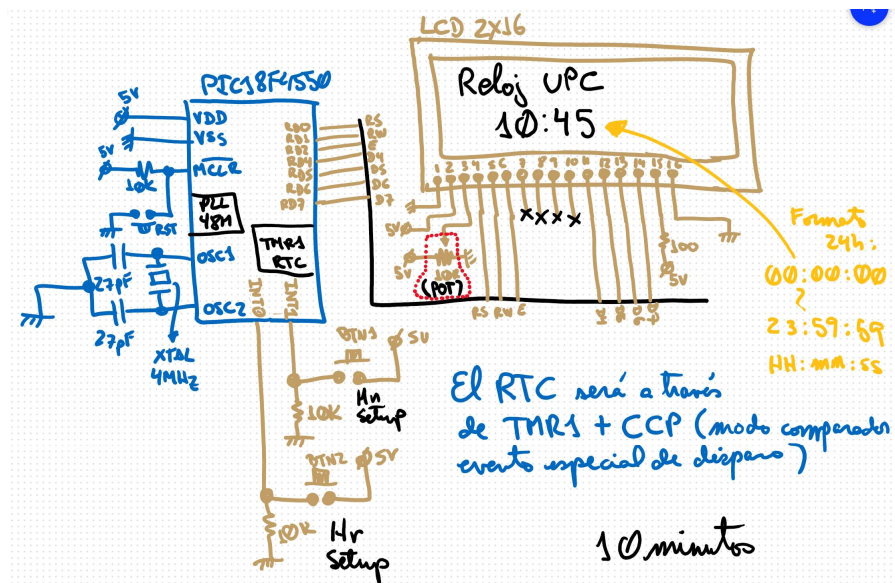 LCD 2X16
PIC18F4550
Reloj UPC
10:45
5V
VDD
VSS
5V
10K
MCLR
RST
PLL
48M
TMR1
RTC
OSC1
OSC2
27pF
27pF
XTAL
4MHz
INT0
INT1
RD0
RD1
RD2
RD4
RD5
RD6
RD7
RS
RW
E
D4
D5
D6
D7
1 2 3 4 5 6 7 8 9 10 11 12 13 14 15 16
x x x x
5V
5V
10K
(POT)
100
5V
RS RW E
D4
D5
D6
D7
Formato
24h:
00:00:00
23:59:59
HH:mm:ss
BTN1
5V
10K
Mn
Setup
BTN2
5V
10K
Hr
Setup
El RTC será a través
de TMR1 + CCP (modo comparador
evento especial de disparo)
10 minutos